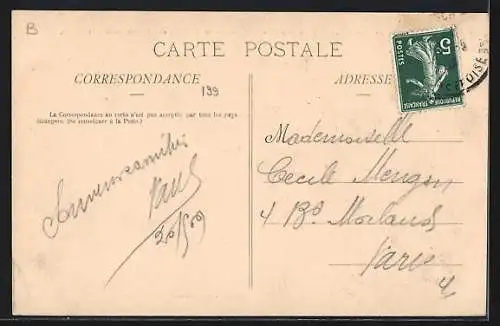 B
CARTE POSTALE
CORRESPONDANCE
139
La Correspondance au recto n'est pas acceptée par tous les pays
étrangers. (Se renseigner à la Poste.)
Paul
ADRESSE
5c
POSTES
REPUBLIQUE FRANÇAISE
OISE
Mademoiselle
Cecile Mengon
4 Bd Morland
Paris
4